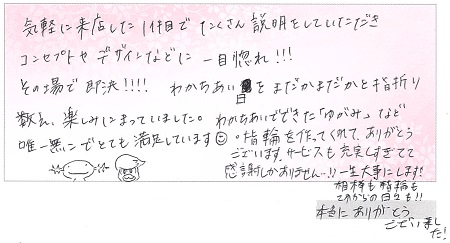 気軽に来店した1件目でたくさん説明をしていただき
コンセプトやデザインなどに一目惚れ!!!
その場で即決!!!! わかちあい日をまだかまだかと指折り
数え、楽しみにまっていました。わかちあいでできた「ゆがみ」など
唯一無二でとても満足しています 指輪を作ってくれて、ありがとう
ございます。サービスも充実しすぎてて
感謝しかありません…!! 一生大事にします!
相棒も指輪も
これからの日々も!!
本当にありがとう
ございました!